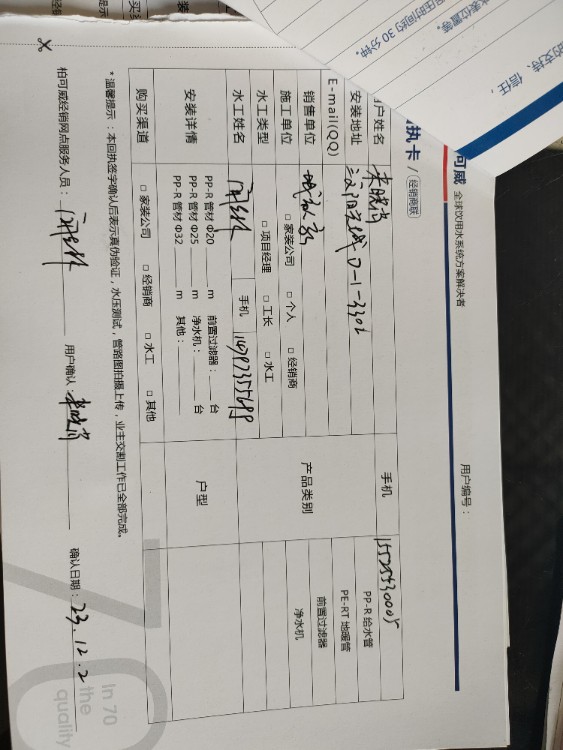 可威 全球饮用水系统方案解决者
执卡 / 经销商联
用户编号：
户姓名 手机 15525430005
安装地址 D-1-3302
E-mail(QQ)
销售单位
施工单位 □ 家装公司 □ 个人 □ 经销商
水工类型 □ 项目经理 □ 工长 □ 水工
水工姓名 手机
产品类别
PP-R 给水管
PE-RT 地暖管
前置过滤器
净水机
安装详情 PP-R 管材 Φ20 ____ m 前置过滤器：____ 台
PP-R 管材 Φ25 ____ m 净水机：____ 台
PP-R 管材 Φ32 ____ m 其他：____
户型
购买渠道 □ 家装公司 □ 经销商 □ 水工 □ 其他
*温馨提示：本回执签字确认后表示真伪验证，水压测试，管路图拍摄上传，业主交割工作已全部完成。
柏可威经销网点服务人员： 用户确认： 确认日期：23.12.2
In 70
the
quality
表位置等。
压时间约 30 分钟。
的支持、信任，